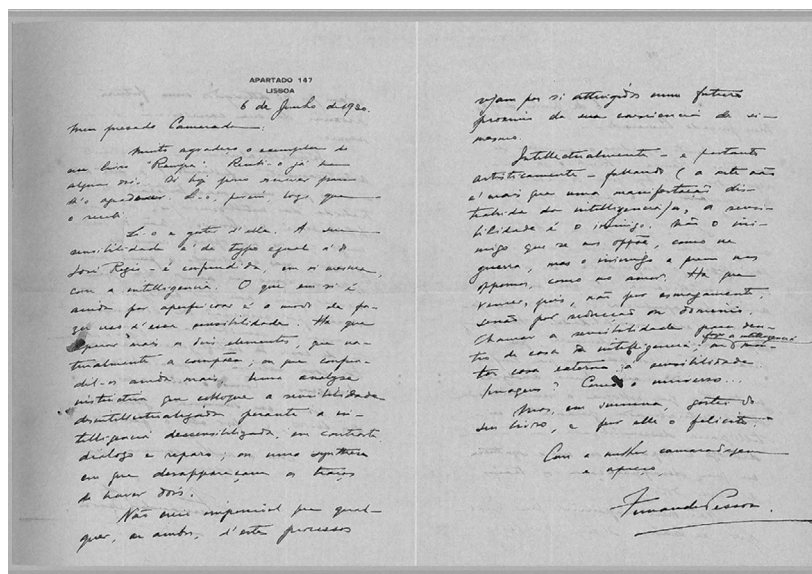 APARTADO 147
LISBOA
6 de Junho de 1930.
Meu presado Camarada:
Muito agradeço o exemplar do
seu livro "Rampa". Recebi-o já ha
alguns dias. Só hoje posso escrever para
lh'o agradecer. Li-o, porém, logo que
o recebi.
Li-o e gostei d'elle. A sua
sensibilidade é de typo egual á do
José Regio - é confundida, em si mesma,
com a intelligencia. O que em si é
ainda por aperfeiçoar é o modo de fa-
zer uso d'essa sensibilidade. Ha que
separar mais os dois elementos, que na-
turalmente a compõem; ou que confun-
dil-os ainda mais. Uma analyse
instinctiva que colloque a sensibilidade
desintellectualizada perante a in-
telligencia dessensibilizada, em contraste
dialogo e reparo; ou uma synthese
em que desappareçam os traços
de haver dois.
Não creio impossivel que qual-
quer, ou ambos, d'estes processos
sejam por si attingidos num futuro
proximo da sua consciencia de si-
mesmo.
Intellectualmente - e portanto
artisticamente - fallando (a arte não
é mais que uma manifestação dis-
trahida da intelligencia), a sensi-
bilidade é o inimigo. Não o ini-
migo que se nos oppõe, como na
guerra, mas o inimigo a quem nos
oppomos, como no amor. Ha que
vencer, pois, não por esmagamento,
senão por seducção ou dominio.
Chamar a sensibilidade para den-
tro de casa da intelligencia?
fazer a intelligencia
casa externa á sensibilidade
Imagens? Como o universo...
Mas, em summa, gostei do
seu livro, e por elle o felicito.
Com a melhor camaradagem
e apreço
Fernando Pessoa.